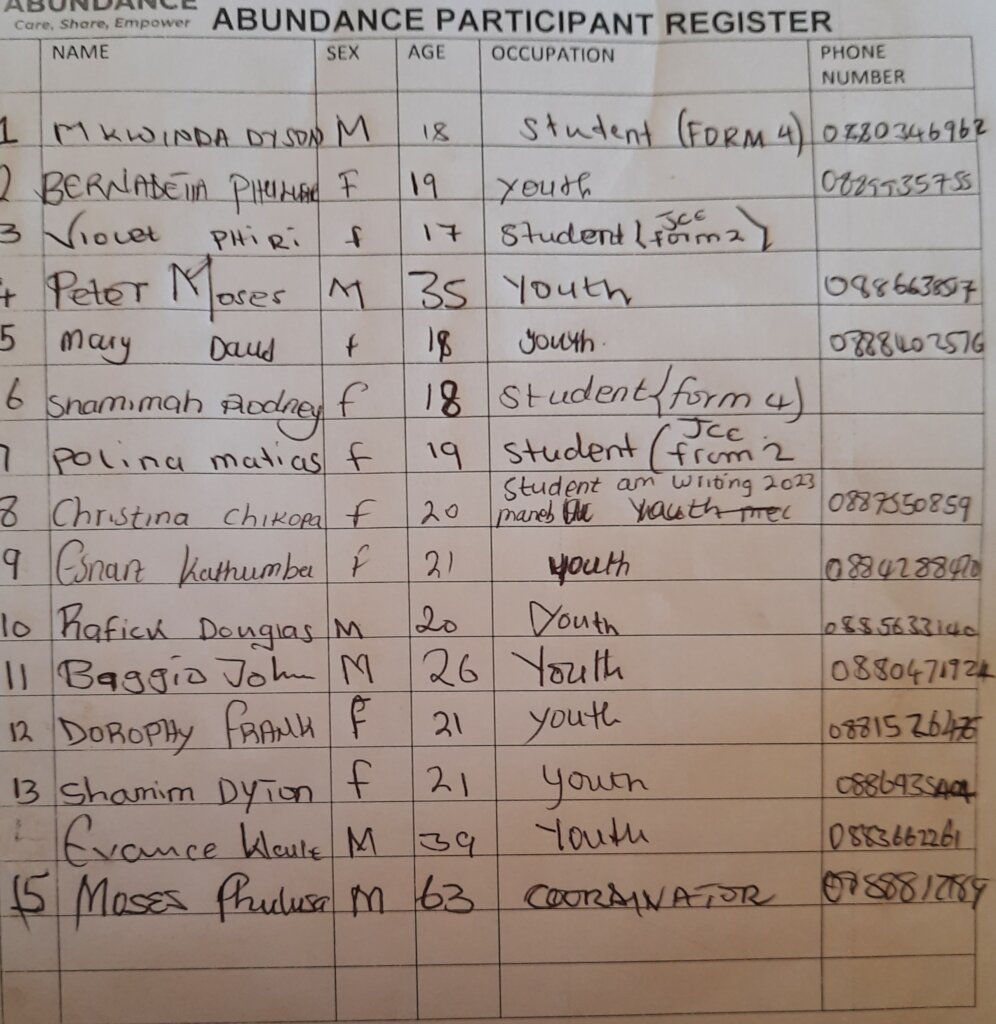 ABUNDANCE
Care, Share, Empower ABUNDANCE PARTICIPANT REGISTER
NAME SEX AGE OCCUPATION PHONE NUMBER
1 MKWINDA DYSON M 18 Student (FORM 4) 0880346962
2 BERNADETTA F 19 youth
3 Violet PHIRI f 17 Student (JCE form 2)
4 Peter Moses M 35 Youth 088663857
5 Mary Daud f 18 youth. 0888402576
6 Shamimah Rodney f 18 Student (form 4)
7 Polina matias f 19 Student (JCE from 2
8 Christina Chikopa f 20 Student am writing 2023 maneb youth mec 0887550859
9 Esnart Kathumba f 21 youth 0884288470
10 Rafick Douglas M 20 Youth 0885633140
11 Baggio John M 26 Youth 0880471924
12 DOROPHY FRANK f 21 youth
13 Shamim Dyton f 21 Youth
Evance M 39 Youth 0883662261
15 Moses Phulusa M 63 COORDINATOR